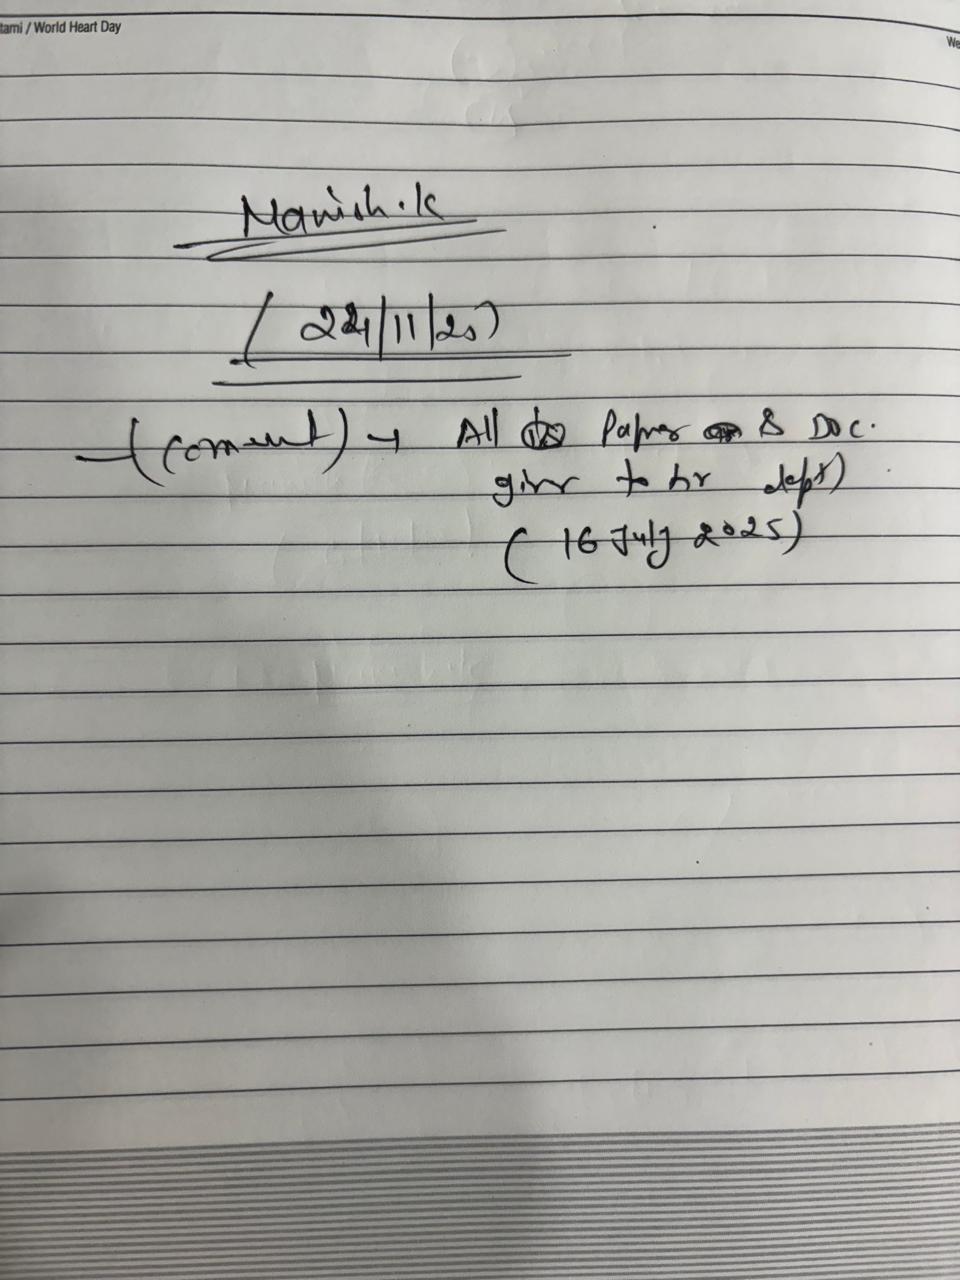 tami / World Heart Day
We
Manish.k
( 24/11/20)
(coment) → All Paper & Doc.
givr to hr dept)
( 16 July 2025)